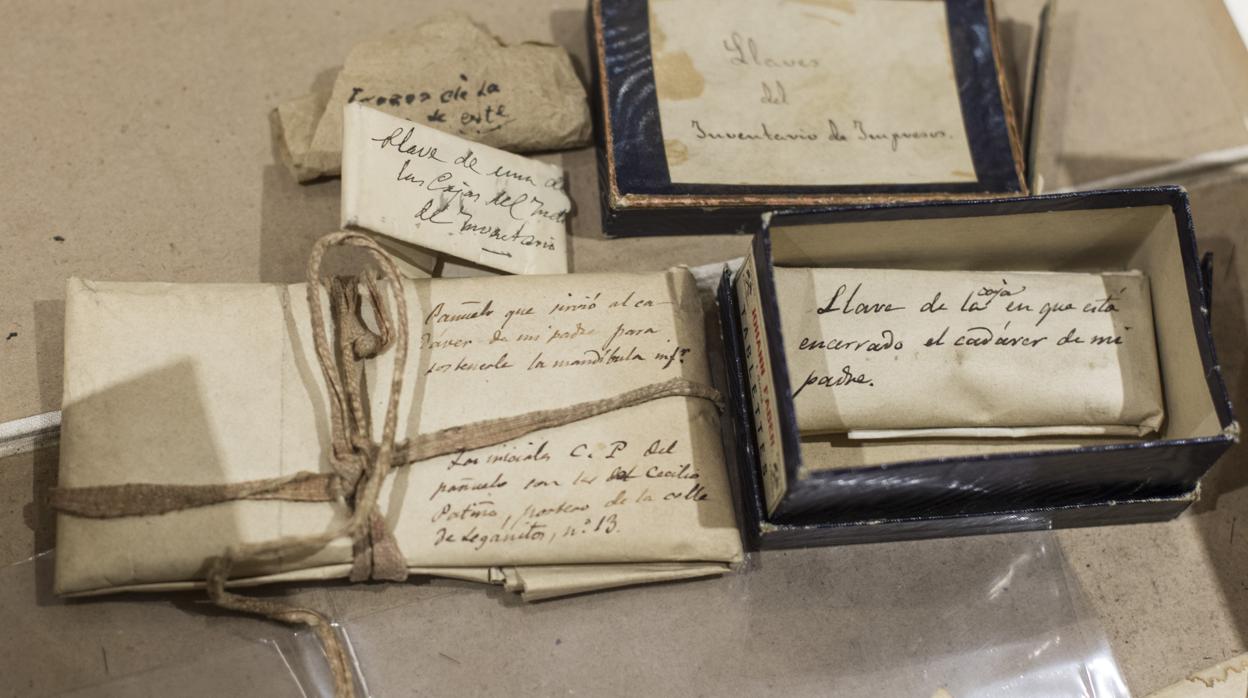 de la
de este
Llave de una de
las Cajas del
del Inventario
Llaves
del
Inventario de Impresos.
Pañuelo que sirvió al ca-
daver de mi padre para
sostenerle la mandíbula infr.
Las iniciales C. P. del
pañuelo son las de Cecilio
Patiño, portero de la calle
de Leganitos, nº 13.
JOHANN FABER
TABLETTES
Llave de la caja en que está
encerrado el cadáver de mi
padre.